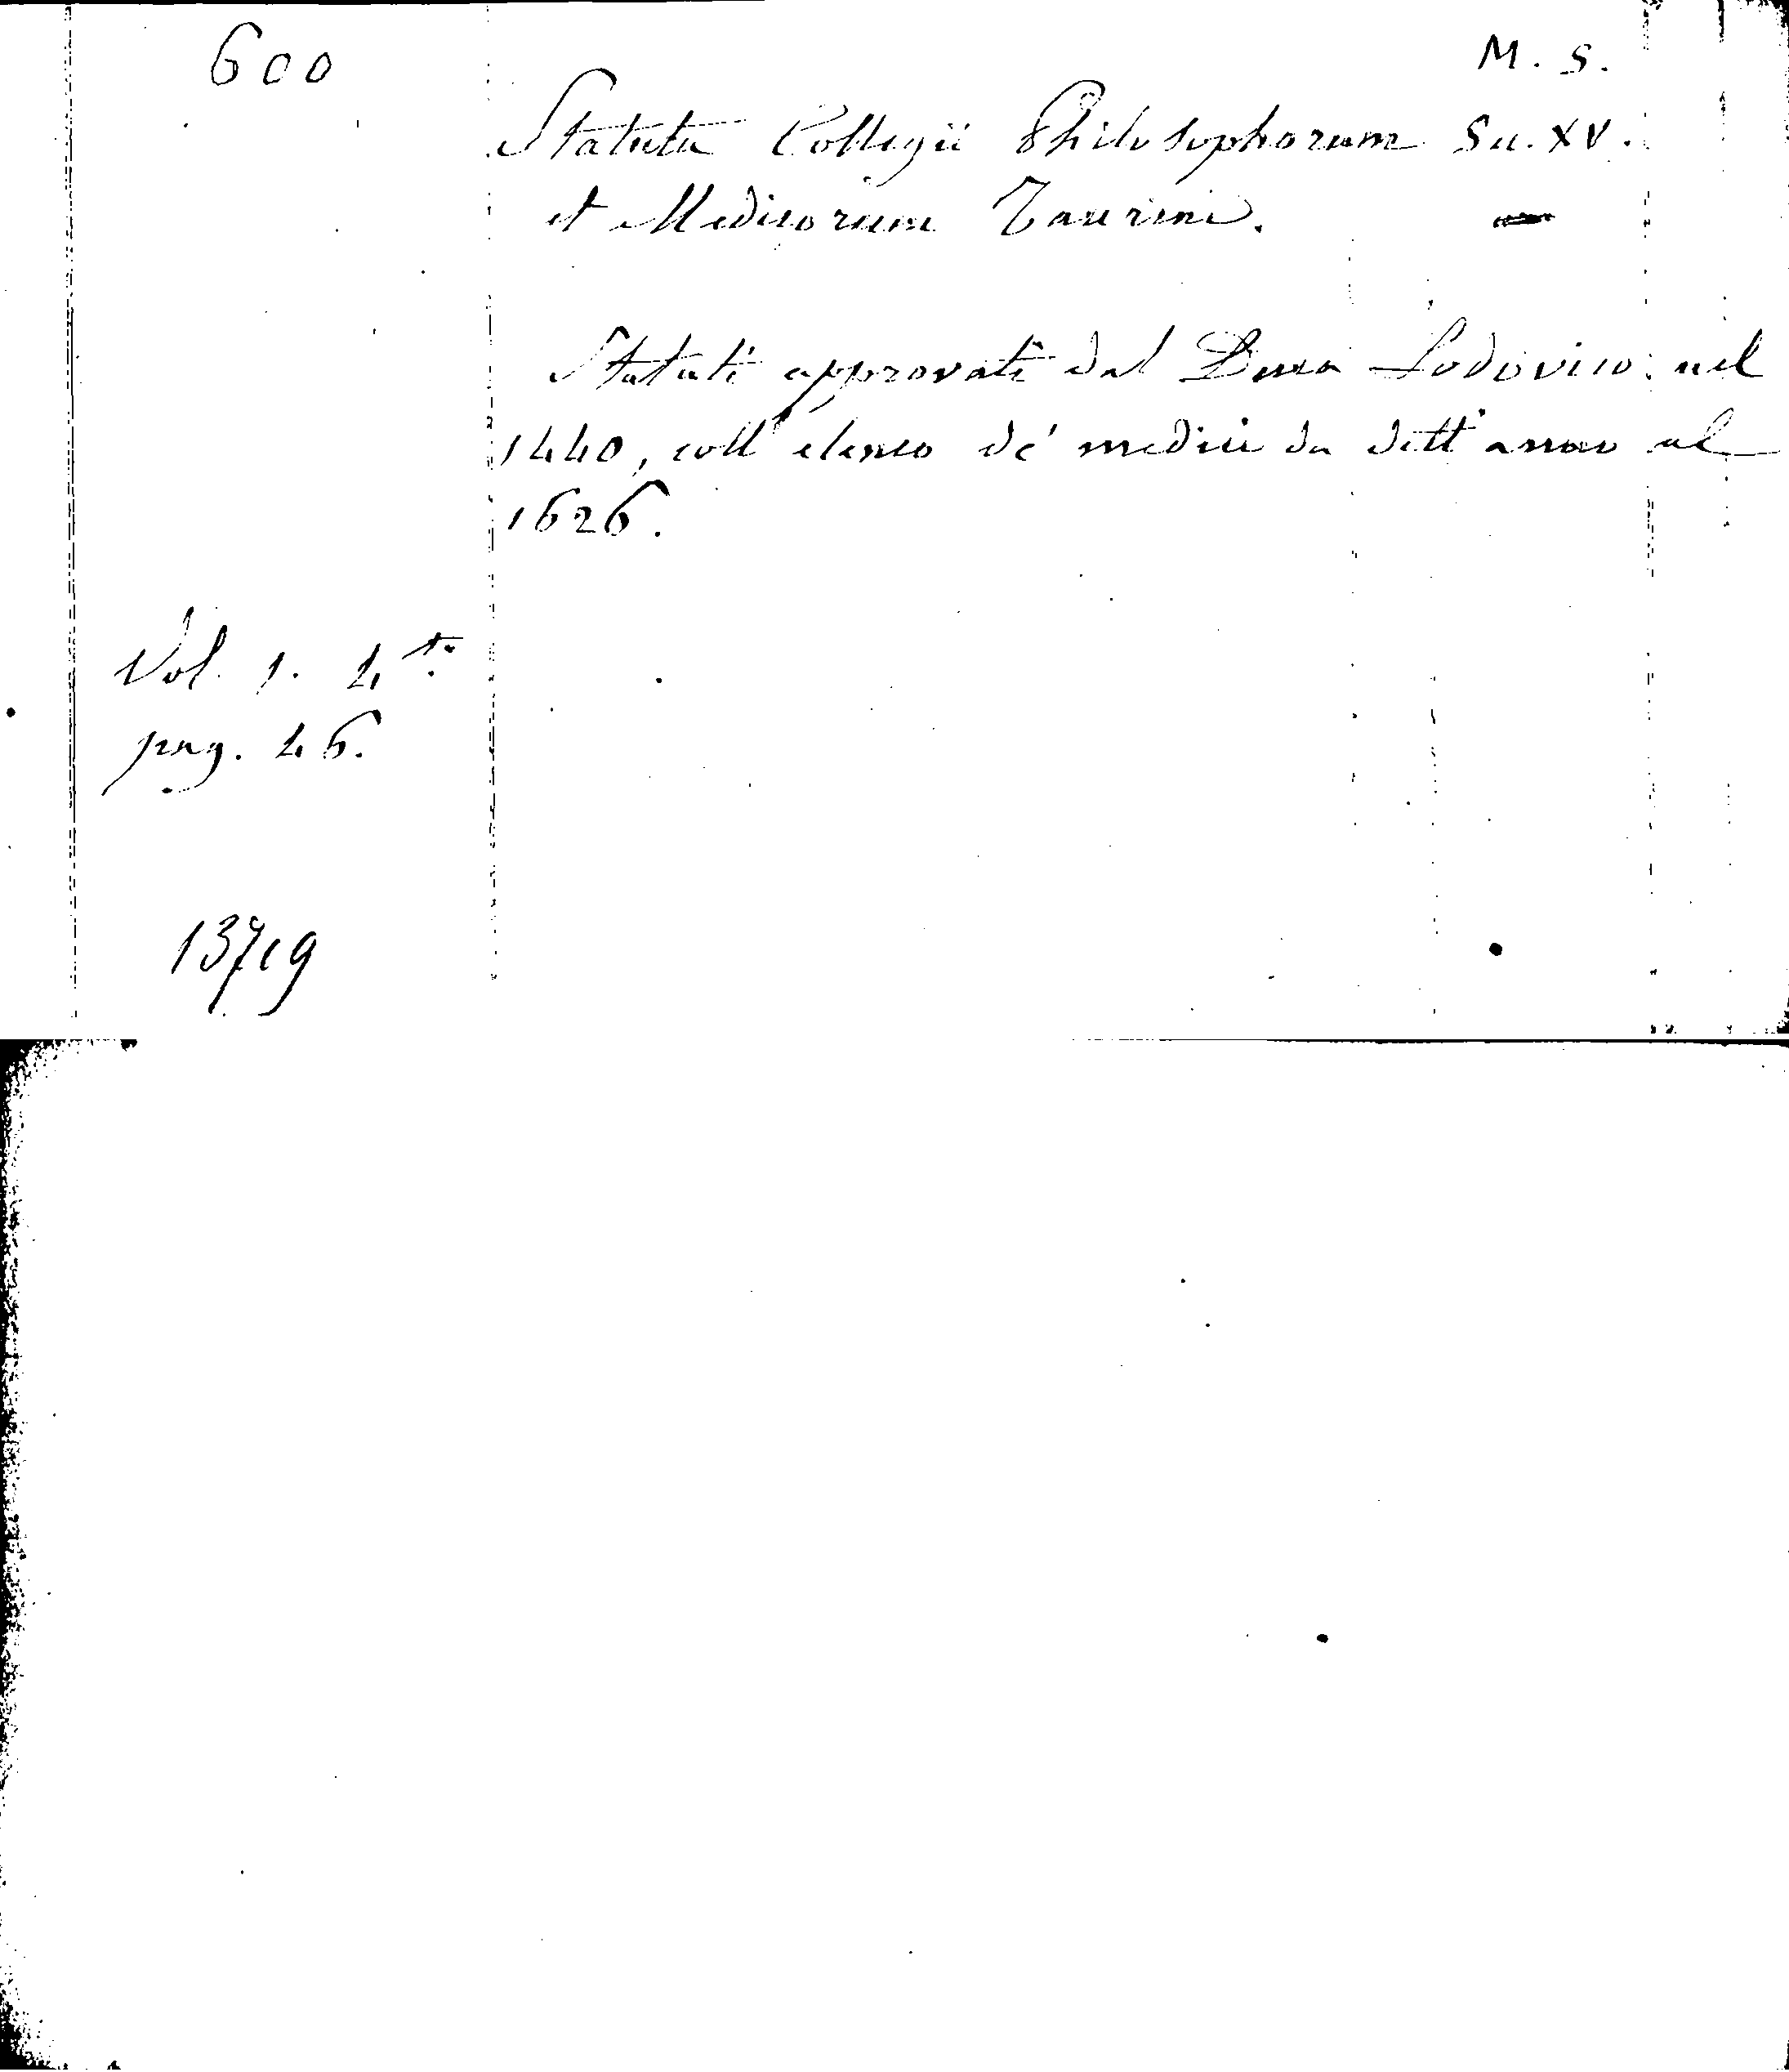 600
M. S.
Statuta Collegii Philosophorum Sec. XV.
et Medicorum Taurini.
Statuti approvati dal Duca Lodovico nel
1440, coll' elenco de' medici da dett' anno al
1626.
Vol. 1. 4.to
pag. 46.
13719